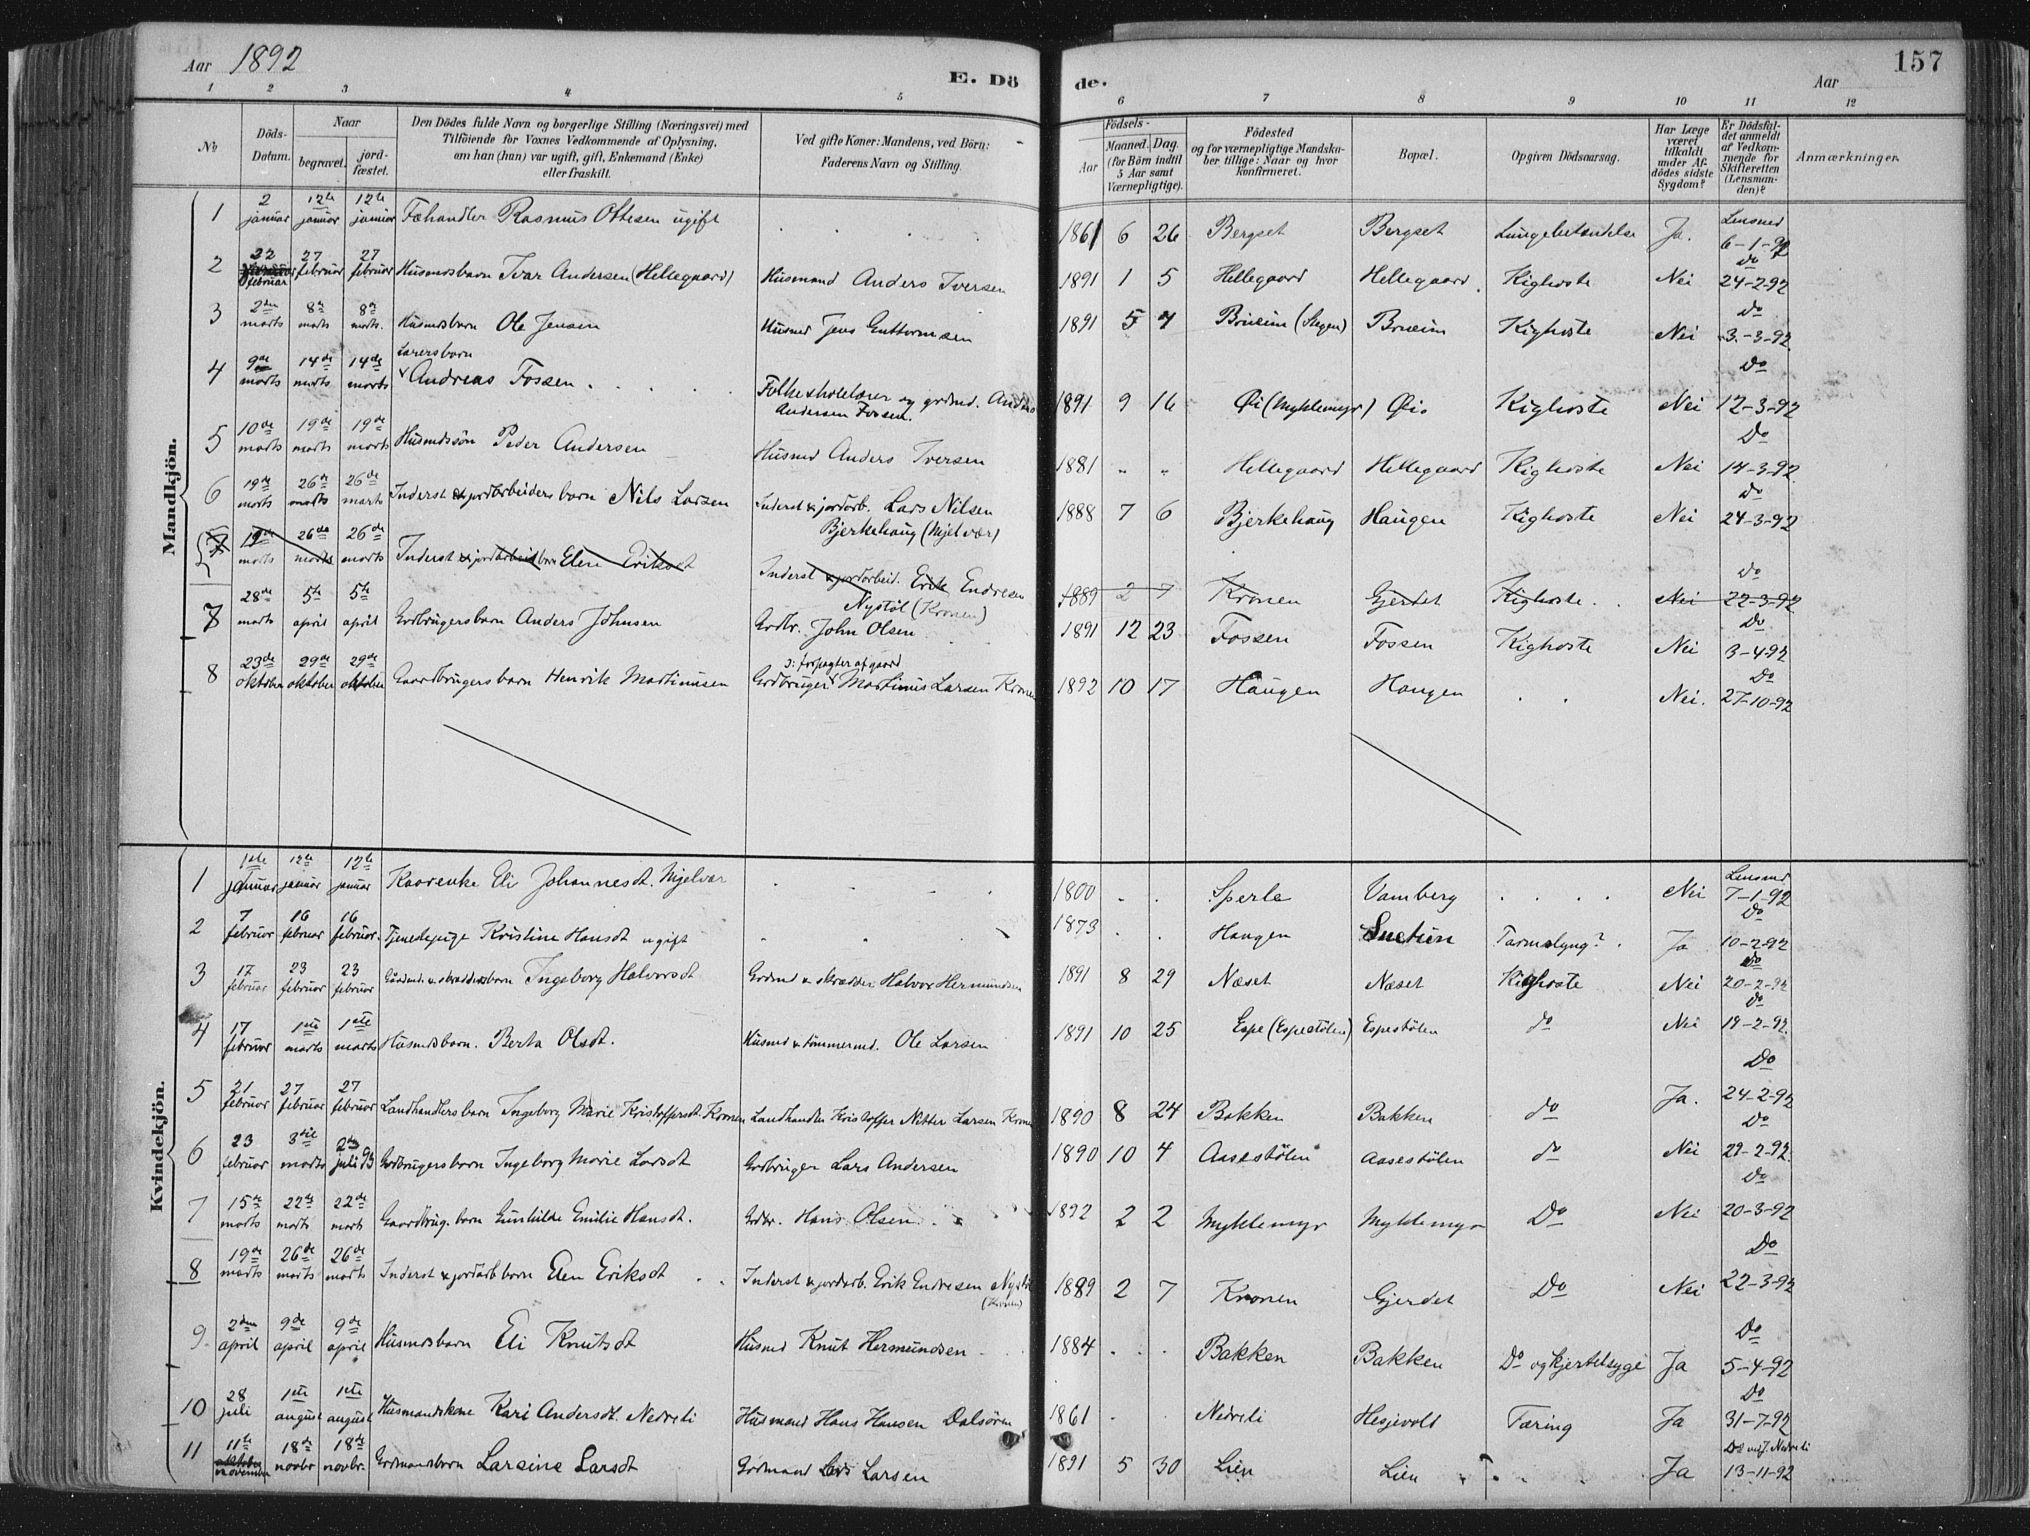 Aar 1892
E. Dö
de.
Aar
157
1 2 3 4 5 6 7 8 9 10 11 12
No
Döds-Datum.
Naar
begravet.
jord-fæstet.
Den Dödes fulde Navn og borgerlige Stilling (Næringsvei) med
Tilföiende for Voxnes Vedkommende af Oplysning,
om han (hun) var ugift, gift, Enkemand (Enke)
eller fraskilt.
Ved gifte Koner: Mandens, ved Börn:
Faderens Navn og Stilling.
Födsels-
Aar
Maaned. Dag.
(for Börn indtil
5 Aar samt
Værnepligtige).
Födested
og for værnepligtige Mandska-
ber tillige: Naar og hvor
konfirmeret.
Bopæl.
Opgiven Dödsaarsag.
Har Læge
været
tilkaldt
under Af-
dödes sidste
Sygdom?
Er Dödsfal-
det anmeldt
af Vedkom-
mende for
Skifteretten
(Lensman-
den)?
Anmærkninger.
Mandkjön.
1 2 januar 12te januar 12te januar Fæhandler Rasmus Ottesen ugift 1861 6 26 Bergset Bergset Lungebetændelse Ja. Lensmd 6-1-92
2 22 februar 27 februar 27 februar Husmdsbarn Ivar Andersen (Hellegaard) Husmand Anders Iversen 1891 1 5 Hellegaard Hellegaard Kighoste Nei Do 24-2-92
3 2den marts 8de marts 8de marts. Husmdsbarn Ole Jensen Husmd Jens Guttormsen 1891 5 7 Brueim (Stegen) Brueim Kighoste Nei Do 3-3-92
4 9de marts 14de marts 14de marts Lærersbarn Andreas Fossen Folkeskolelærer og grdmd. Andreas Andersen Fossen. 1891 9 16 Øi (Myklemyr) Øi Kighoste Nei Do 12-3-92
5 10de marts 19de marts 19de marts Husmdssøn Peder Andersen Husmd Anders Iversen 1881 " " Hellegaard Hellegaard Kighoste Nei Do 14-3-92
6 19de marts 26de marts 26de marts Inderst & jordarbeidersbarn Nils Larsen Inderst & jordarb. Lars Nilsen Bjerkehaug (Mjelvær) 1888 7 6 Bjerkehaug Haugen Kighoste Nei Do 24-3-92
7 19de marts 26de marts 26de marts Inderst & jordarbeidsbarn Elen Eriksdt Inderst & jordarbeid. Erik Endresen Nystøl (Kronen) 1889 2 7 Kronen Gjerdet Kighoste Nei Do 22-3-92
7 28de marts 5te april 5te april Grdbrugersbarn Anders Johnsen Grdbr. John Olsen 1891 12 23 Fossen Fossen Kighoste Nei Do 3-4-92
8 23de oktober 29de oktober 29de oktober Gaardbrugersbarn Henrik Martinusen Grdbruger ɔ: forpagter af gaard Martinus Larsen Kronen 1892 10 17 Haugen Haugen Nei. Do 27-10-92
Kvindekjön.
1 1ste januar 12te januar 12te januar Kaarenke Eli Johannesdt. Mjelvær 1800 Sperle Vamberg Nei Lensmd 7-1-92
2 7 februar 16 februar 16 februar. Tjenestepige Kristine Hansdt ugift 1873 Haugen Tarmslyng? Ja Do 10-2-92
3 17 februar 23 februar 23 februar Gårdmd. & skræddersbarn Ingeborg Halvorsdt Grdmd & skrædder Halvor Hermundsen 1891 8 29 Næset Næset Kighoste Nei Do 20-2-92
4 17 februar 1ste marts 1ste marts Husmdsbarn. Berta Olsdt. Husmd & tømmermd. Ole Larsen 1891 10 25 Espe (Espestølen) Espestølen do Nei Do 19-2-92
5 21 februar 27 februar 27 februar Landhandlersbarn Ingeborg Marie Kristoffersdt. Kronen Landhandler Kristoffer Nitter Larsen Kronen 1890 8 24 Bakken Bakken do Ja. Do 24-2-92
6 23 februar 3die marts 2den juli 93 Grdbrugersbarn Ingeborg Marie Larsdt Grdbruger Lars Andersen 1890 10 4 Aasestølen Aasestølen do Nei Do 29-2-92
7 15de marts 22de marts 22de marts Gaardbrug. barn Gunhilde Emilie Hansdt. Grdbr. Hans Olsen 1892 2 2 Myklemyr Myklemyr Do Nei Do 20-3-92
8 19de marts 26de marts 26de marts Inderst & jordarb barn Elen Eriksdt Inderst & jordarb. Erik Endresen Nystøl (Kronen) 1889 2 7 Kronen Gjerdet Do Nei Do 22-3-92
9 2den april 9de april 9de april Husmdsbarn Eli Knutsdt Husmd Knut Hermundsen 1884 Bakken Bakken Do og kjertelsyge Ja Do 5-4-92
10 28 juli 1ste august 1ste august Husmandskone Kari Andersdt. Nedreli Husmand Hans Hansen Dalsøren 1861 Nedreli Hesjevolt Tæring Ja Do 31-7-92
11 11te november 18de novbr 18de novbr. Grdmandsbarn Larsine Larsdt Grdmand Lars Larsen 1891 5 30 Lien Lien Ja Do ved J. Nedreli 13-11-92